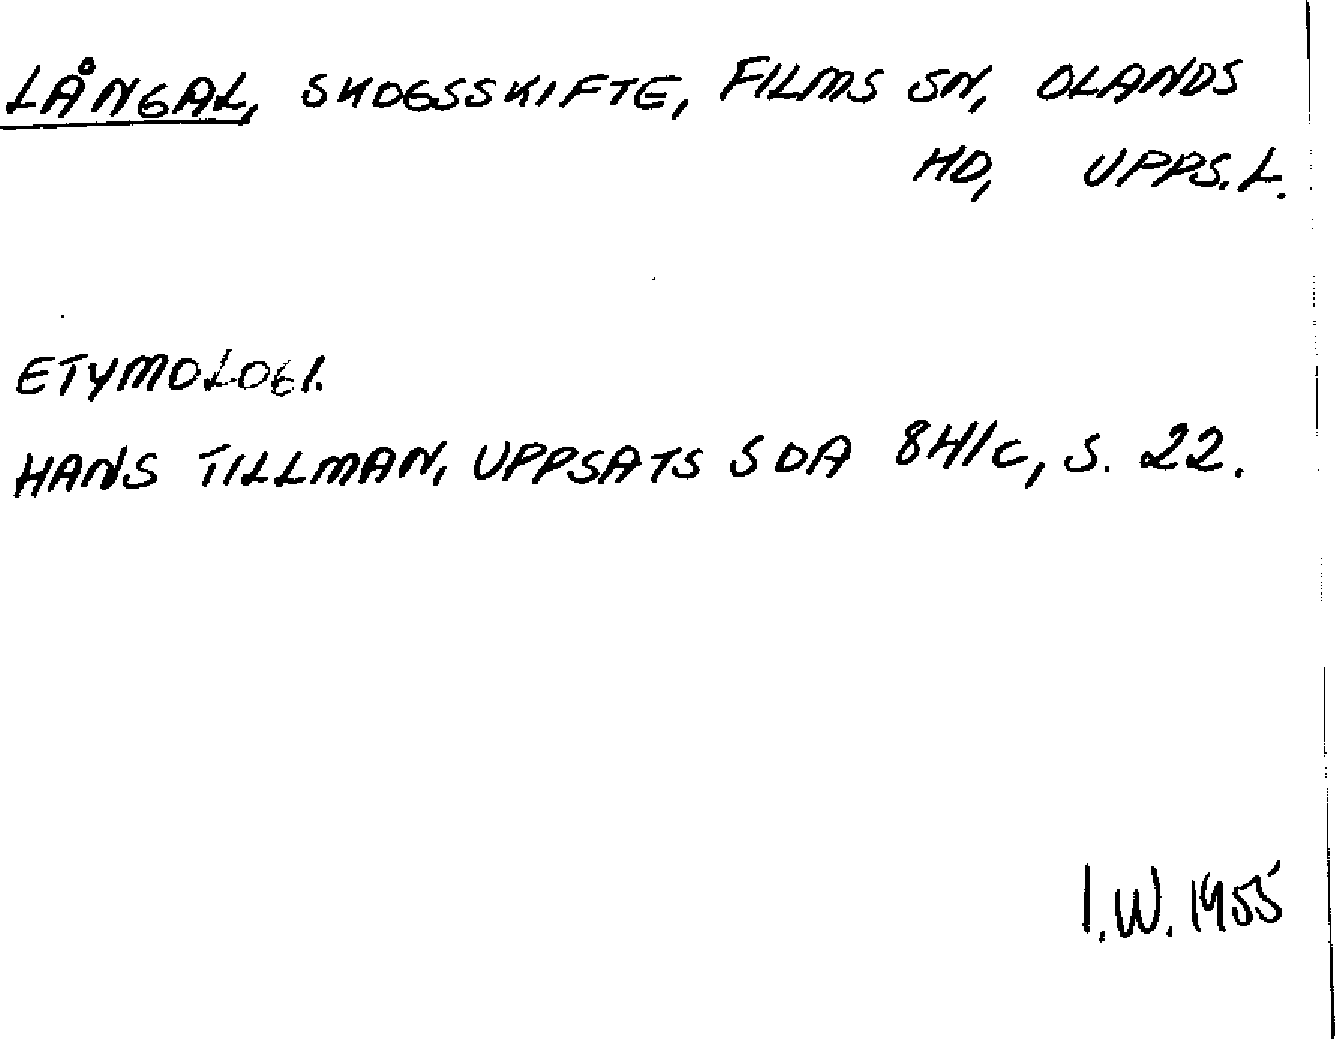 LÅNGAL, SKOGSSKIFTE, FILMS SN, OLANDS
HD, UPPS.L.
ETYMOLOGI.
HANS TILLMAN, UPPSATS SOA 84/C, S. 22.
I.W. 1955